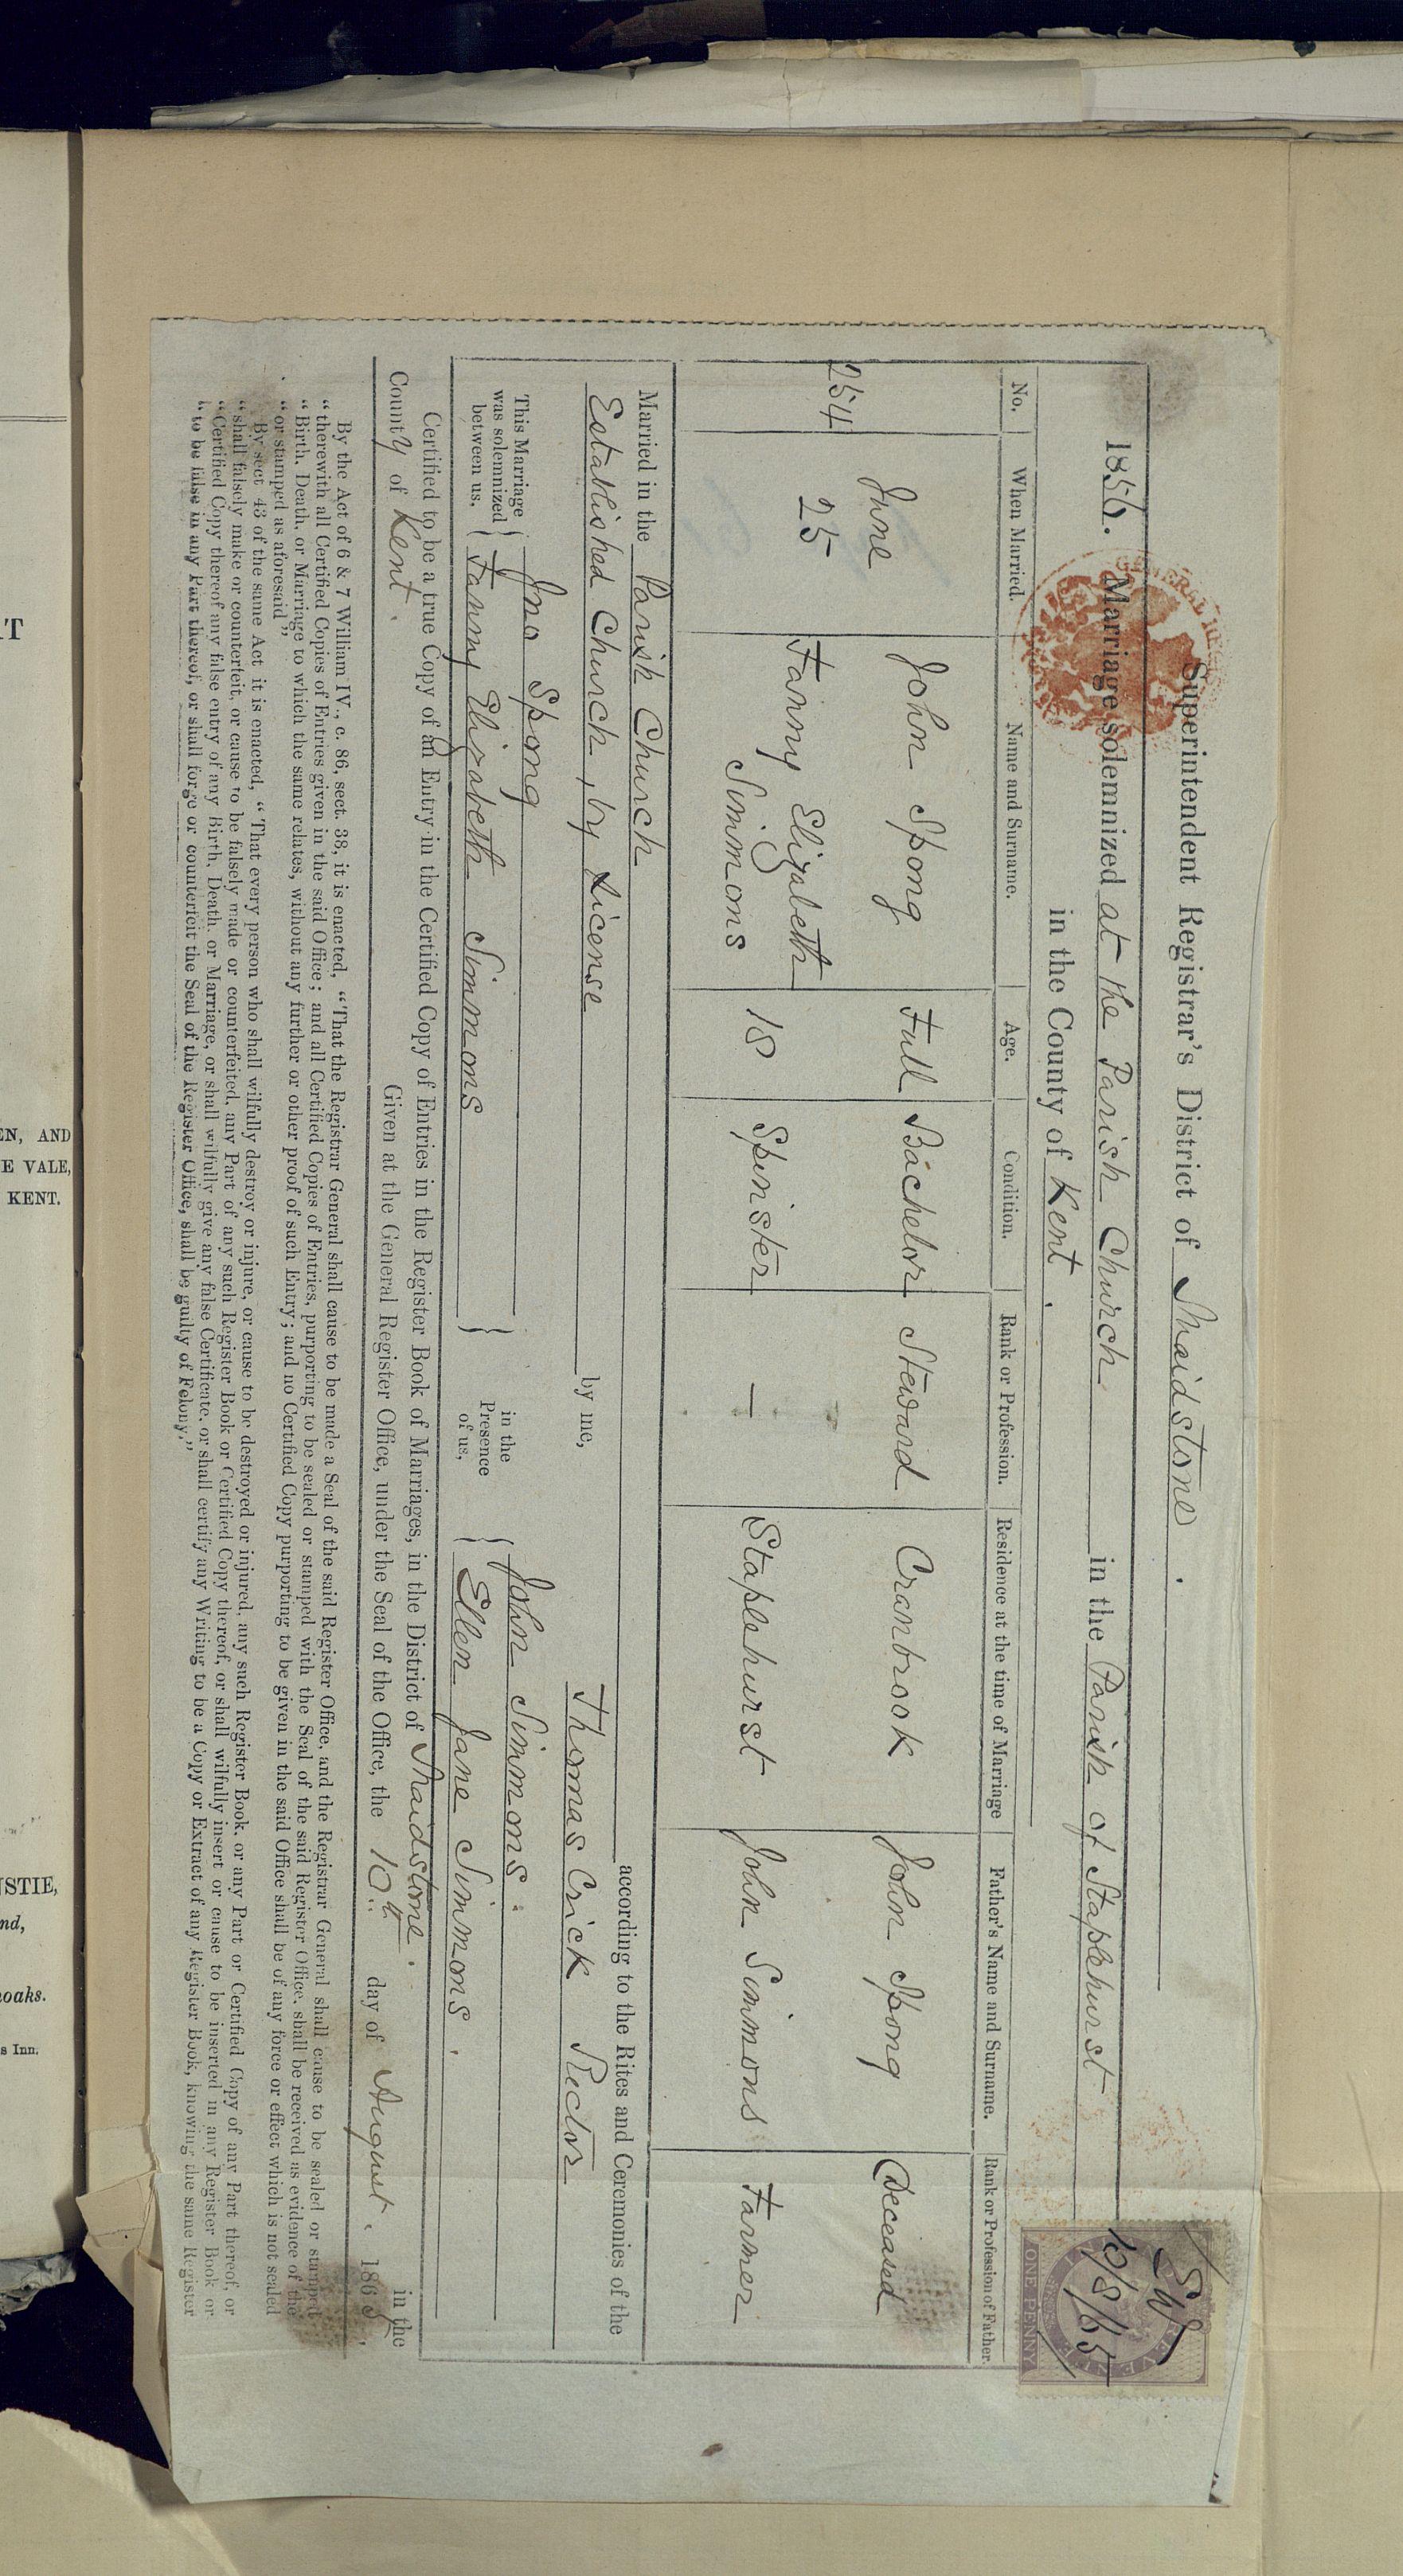 Superintendent Registrar's District of Maidstone.
1856. Marriage solemnized at the Parish Church in the Parish of Staplehurst
in the County of Kent.
No. When Married. Name and Surname. Age. Condition. Rank or Profession. Residence at the time of Marriage Father's Name and Surname. Rank or Profession of Father.
254 June 25 John Spong Full Bachelor Steward Cranbrook John Spong Deceased
Fanny Elizabeth Simmons 18 Spinster — Staplehurst John Simmons Farmer
Married in the Parish Church according to the Rites and Ceremonies of the
Established Church, by License by me, Thomas Crick Rector
This Marriage was solemnized between us, Jno Spong in the Presence of us, John Simmons.
Fanny Elizabeth Simmons Ellen Jane Simmons.
Certified to be a true Copy of an Entry in the Certified Copy of Entries in the Register Book of Marriages, in the District of Maidstone. in the
County of Kent. Given at the General Register Office, under the Seal of the Office, the 10th day of August. 1865.
By the Act of 6 & 7 William IV., c. 86, sect. 38, it is enacted, "That the Registrar General shall cause to be made a Seal of the said Register Office, and the Registrar General shall cause to be sealed or stamped
"therewith all Certified Copies of Entries given in the said Office; and all Certified Copies of Entries, purporting to be sealed or stamped with the Seal of the said Register Office, shall be received as evidence of the
"Birth, Death, or Marriage to which the same relates, without any further or other proof of such Entry; and no Certified Copy purporting to be given in the said Office shall be of any force or effect which is not sealed
"or stamped as aforesaid."
By sect 43 of the same Act it is enacted, "That every person who shall wilfully destroy or injure, or cause to be destroyed or injured, any such Register Book, or any Part or Certified Copy of any Part thereof, or
"shall falsely make or counterfeit, or cause to be falsely made or counterfeited, any Part of any such Register Book or Certified Copy thereof, or shall wilfully insert or cause to be inserted in any Register Book or
"Certified Copy thereof any false entry of any Birth, Death, or Marriage, or shall wilfully give any false Certificate, or shall certify any Writing to be a Copy or Extract of any Register Book, knowing the same Register
"to be false in any Part thereof, or shall forge or counterfeit the Seal of the Register Office, shall be guilty of Felony."
10/8/65
ONE PENNY
GENERAL
EN, AND
E VALE,
KENT.
STIE,
nd,
oaks.
s Inn.